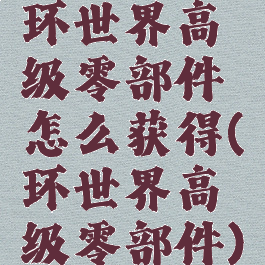 环世界高
级零部件
怎么获得(
环世界高
级零部件)